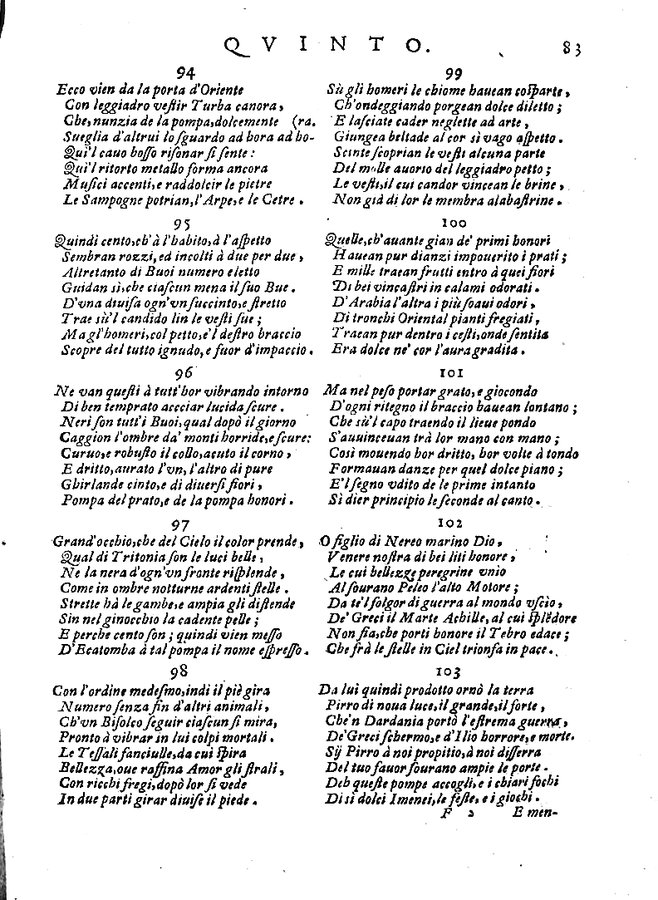 QVINTO. 83
94
Ecco vien da la porta d'Oriente
Con leggiadro vestir Turba canora,
Che, nunzia de la pompa, dolcemente (ra.
Sueglia d'altrui lo sguardo ad hora ad ho-
Qui'l cauo bosso risonar si sente:
Qui'l ritorto metallo forma ancora
Musici accenti, e raddolcir le pietre
Le Sampogne potrian, l'Arpe, e le Cetre.
95
Quindi cento, ch'à l'habito, à l'aspetto
Sembran rozzi, ed incolti à due per due,
Altretanto di Buoi numero eletto
Guidan sì, che ciascun mena il suo Bue.
D'vna diuisa ogn'vn succinto, e stretto
Trae sù'l candido lin le vesti sue;
Ma gl'homeri, col petto, e'l destro braccio
Scopre del tutto ignudo, e fuor d'impaccio.
96
Ne van questi à tutt'hor vibrando intorno
Di ben temprato acciar lucida scure.
Neri son tutt'i Buoi, qual dopò il giorno
Caggion l'ombre da' monti horride, e scure:
Curuo, e robusto il collo, acuto il corno,
E dritto, aurato l'vn, l'altro di pure
Ghirlande cinto, e di diuersi fiori,
Pompa del prato, e de la pompa honori.
97
Grand'occhio, che del Cielo il color prende,
Qual di Tritonia son le luci belle,
Ne la nera d'ogn'vn fronte risplende,
Come in ombre notturne ardenti stelle.
Strette hà le gambe, e ampia gli distende
Sin nel ginocchio la cadente pelle;
E perche cento son; quindi vien messo
D'Ecatomba à tal pompa il nome espresso.
98
Con l'ordine medesmo, indi il piè gira
Numero senza fin d'altri animali,
Ch'vn Bifolco seguir ciascun si mira,
Pronto à vibrar in lui colpi mortali.
Le Tessali fanciulle, da cui spira
Bellezza, oue raffina Amor gli strali,
Con ricchi fregi, dopò lor si vede
In due parti girar diuise il piede.
99
Sù gli homeri le chiome hauean cosparte,
Ch'ondeggiando porgean dolce diletto;
E lasciate cader neglette ad arte,
Giungea beltade al cor sì vago aspetto.
Scinte scoprian le vesti alcuna parte
Del molle auorio del leggiadro petto;
Le vesti, il cui candor vincean le brine,
Non già di lor le membra alabastrine.
100
Quelle, ch'auante gian de' primi honori
Hauean pur dianzi impouerito i prati;
E mille traean frutti entro à quei fiori
Di bei vincastri in calami odorati.
D'Arabia l'altra i più soaui odori,
Di tronchi Oriental pianti fregiati,
Traean pur dentro i cesti, onde sentita
Era dolce ne' cor l'aura gradita.
101
Ma nel peso portar grato, e giocondo
D'ogni ritegno il braccio hauean lontano;
Che sù'l capo traendo il lieue pondo
S'auuinceuan trà lor mano con mano;
Così mouendo hor dritto, hor volte à tondo
Formauan danze per quel dolce piano;
E'l segno vdito de le prime intanto
Sì dier principio le seconde al canto.
102
O figlio di Nereo marino Dio,
Venere nostra di bei liti honore,
Le cui bellezze peregrine vnio
Al sourano Peleo l'alto Motore;
Da te'l folgor di guerra al mondo vscìo,
De' Greci il Marte Achille, al cui splẽdore
Non fia, che porti honore il Tebro edace;
Che frà le stelle in Ciel trionfa in pace.
103
Da lui quindi prodotto ornò la terra
Pirro di noua luce, il grande, il forte,
Che'n Dardania portò l'estrema guerra,
De' Greci schermo, e d'Ilio horrore, e morte.
Sij Pirro à noi propitio, à noi disserra
Del tuo fauor sourano ampie le porte.
Deh queste pompe accogli, e i chiari fochi
Di si dolci Imenei, le feste, e i giochi.
F 2 E men-